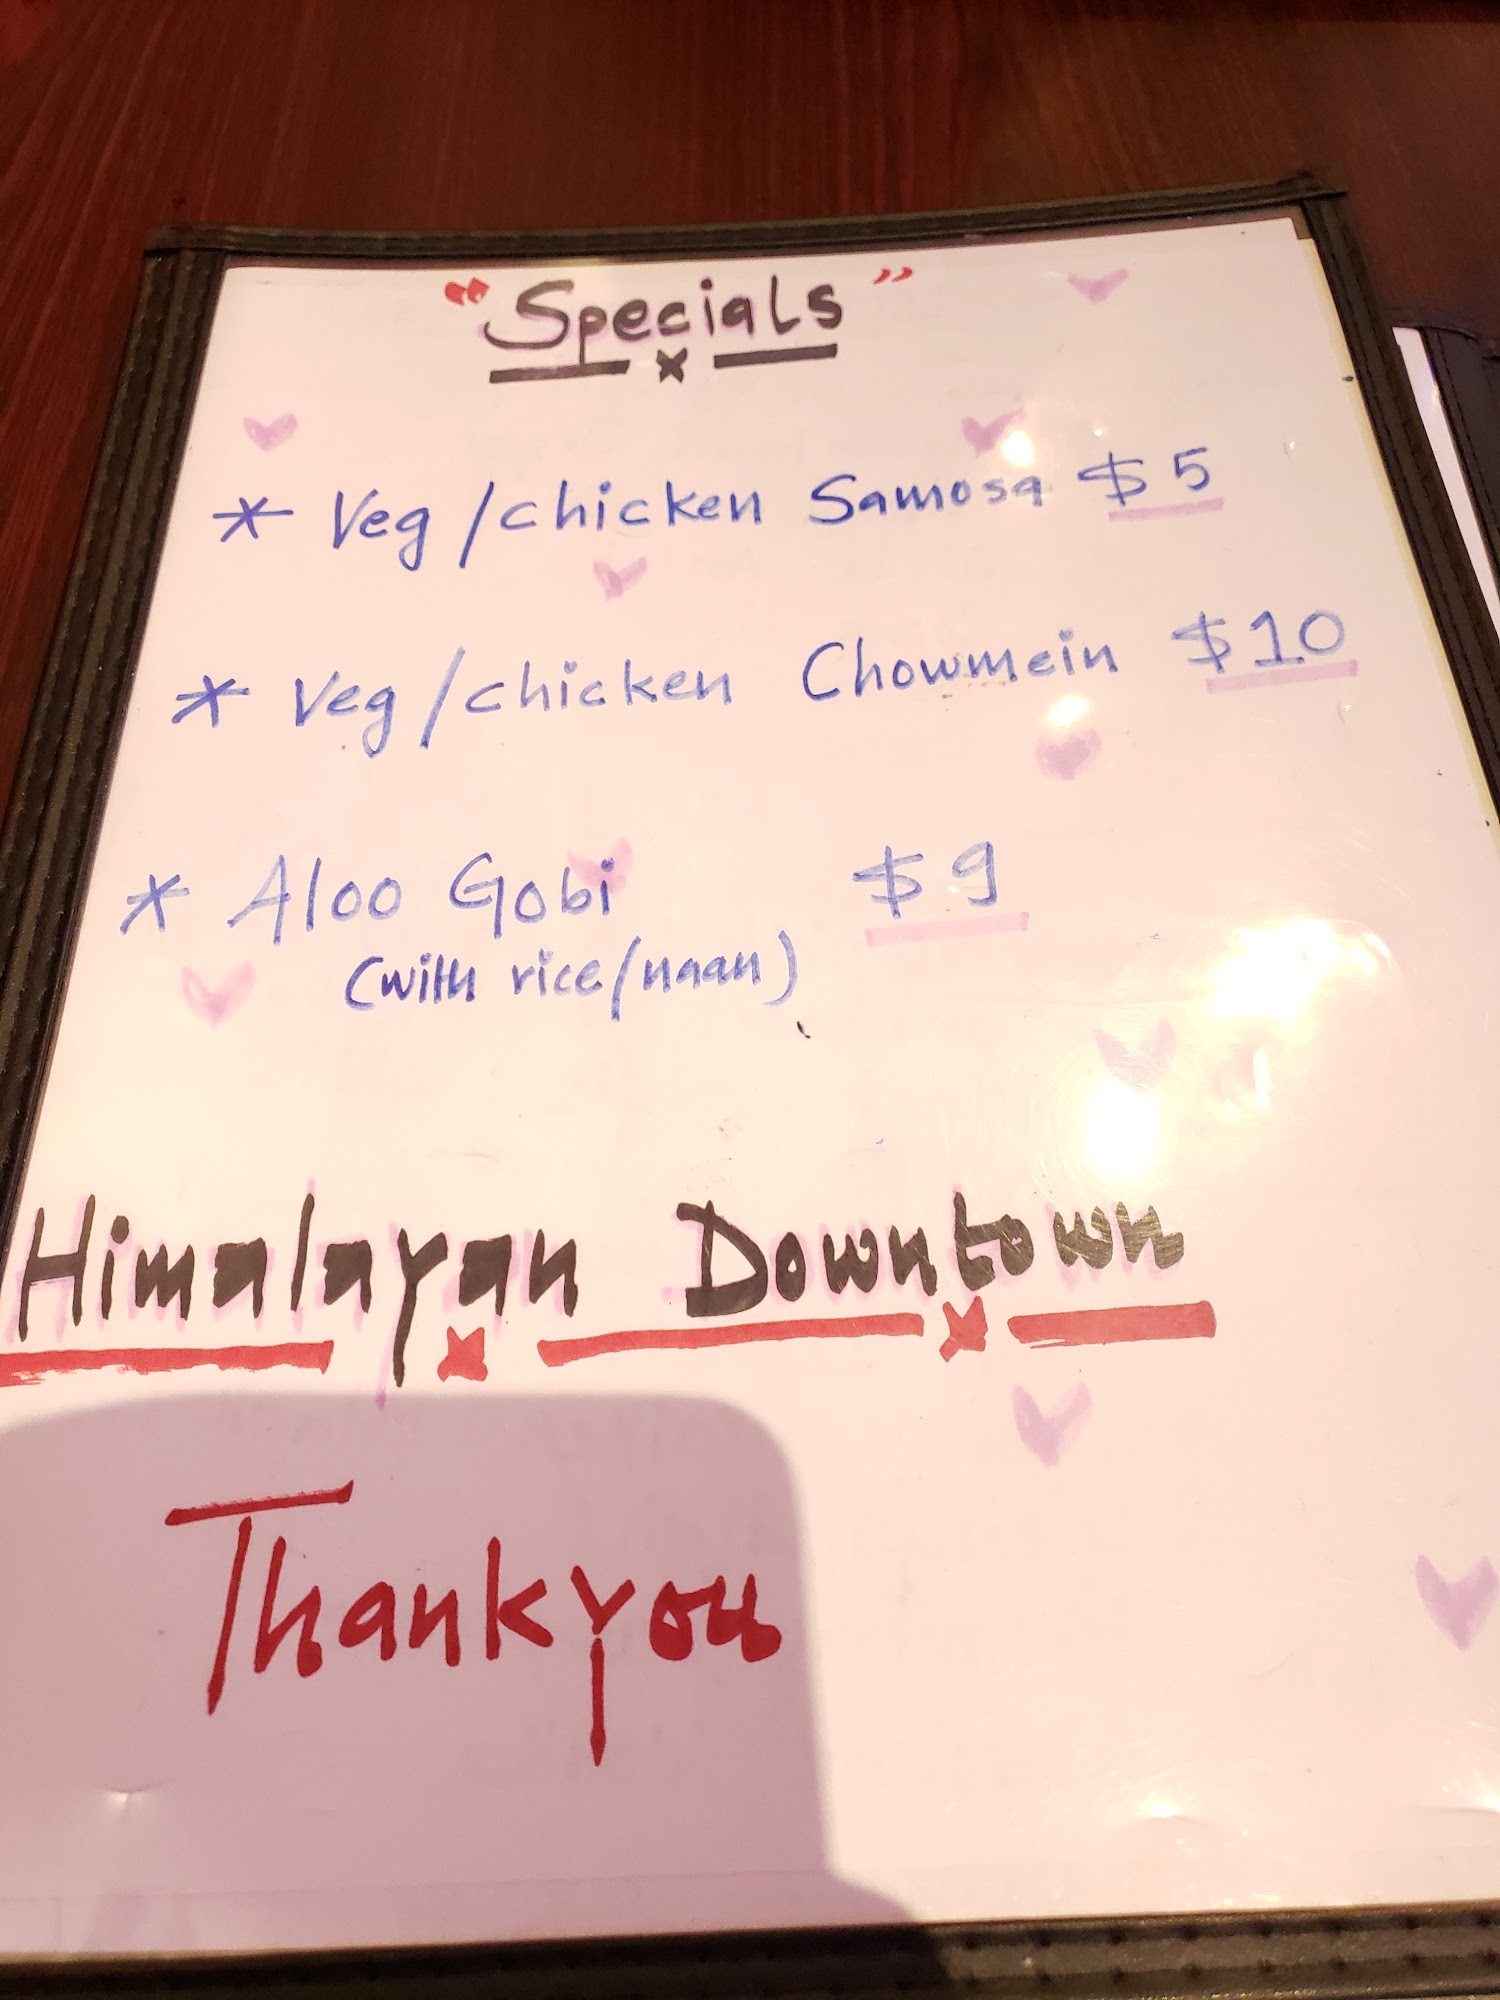 "Specials"
* Veg/chicken Samosa $5
* Veg/chicken Chowmein $10
* Aloo Gobi $9
(with rice/naan)
Himalayan Downtown
Thankyou